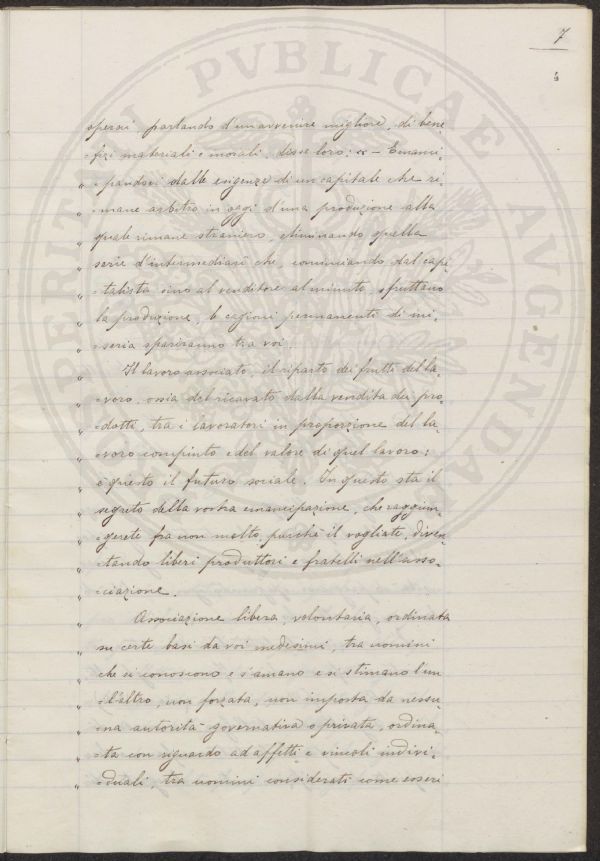 7
spersi parlando d'un avvenire migliore, di bene-
=fizi materiali e morali, disse loro: « — Emanci-
" =pandovi dalle esigenze di un capitale che ri-
" =mane arbitro in oggi d'una produzione alla
" quale rimane straniero, eliminando quella
" serie d'intermediarî che, cominciando dal capi-
" =talista sino al venditore al minuto, sfruttano
" la produzione, le cagioni permanenti di mi-
" =seria spariranno tra voi
" Il lavoro associato, il riparto dei frutti del la-
" =voro, ossia del ricavato dalla vendita dei pro-
" =dotti, tra i lavoratori in proporzione del la-
" =voro compiuto e del valore di quel lavoro:
" è questo il futuro sociale. In questo sta il
" segreto della vostra emancipazione, che raggiun-
" =gerete fra non molto, purchè il vogliate, diven-
" =tando liberi produttori e fratelli nell'asso-
" =ciazione.
" Associazione libera, volontaria, ordinata
" su certe basi da voi medesimi, tra uomini
" che si conoscono e s'amano e si stimano l'un
" =l'altro, non forzata, non imposta da nessu-
" =na autorità governativa o privata, ordina-
" =ta con riguardo ad affetti e vincoli indivi-
" =duali, tra uomini considerati come esseri
PERITAT PVBLICAE AVGENDAE